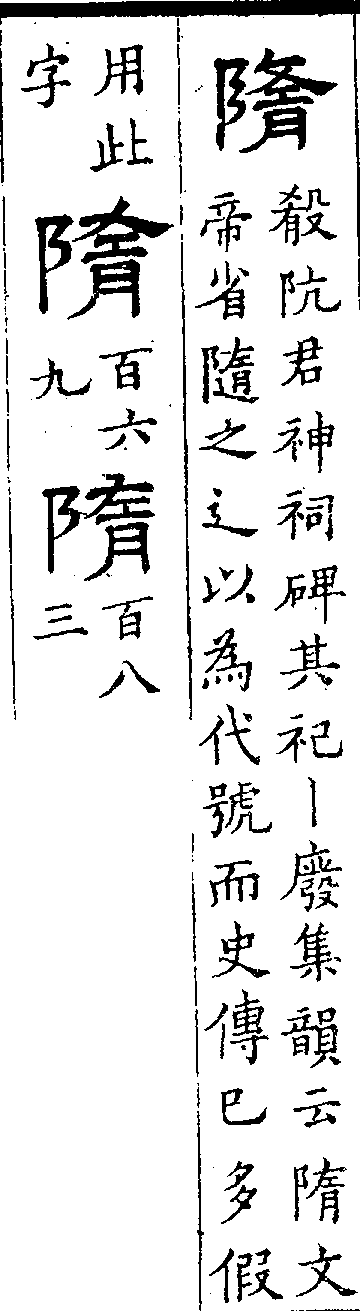 隋
殽阬君神祠碑其祀丨廢集韻云隋文
帝省隨之辶以為代號而史傳巳多假
用此
字
隋
百六
九
隋
百八
三